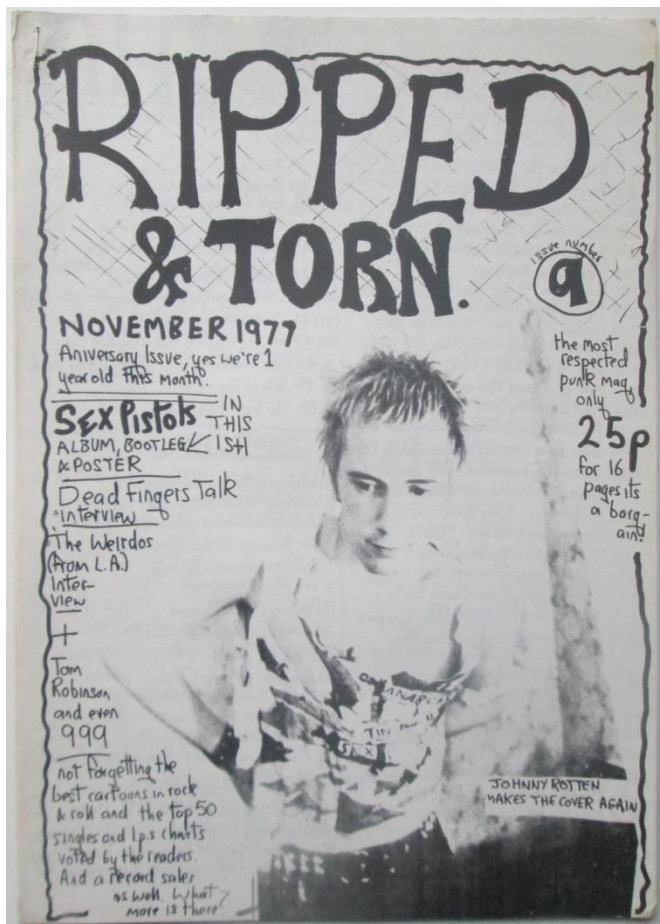 RIPPED
& TORN.
issue number
9
NOVEMBER 1977
Aniversary Issue, yes we're 1
year old this month.
SEX PistOls
IN
THIS
ISH
ALBUM, BOOTLEG
& POSTER
Dead Fingers Talk
interview
The Weirdos
(from L.A.)
Inter-
view
+
Tom
Robinson
and even
999
not forgetting the
best cartoons in rock
& roll and the top 50
singles and l.p.s charts
voted by the readers.
And a record sales
as well. What
more is there
the most
respected
punk mag
only
25p
for 16
pages its
a barg-
ain!
ANARCHY
SEX
JOHNNY ROTTEN
MAKES THE COVER AGAIN